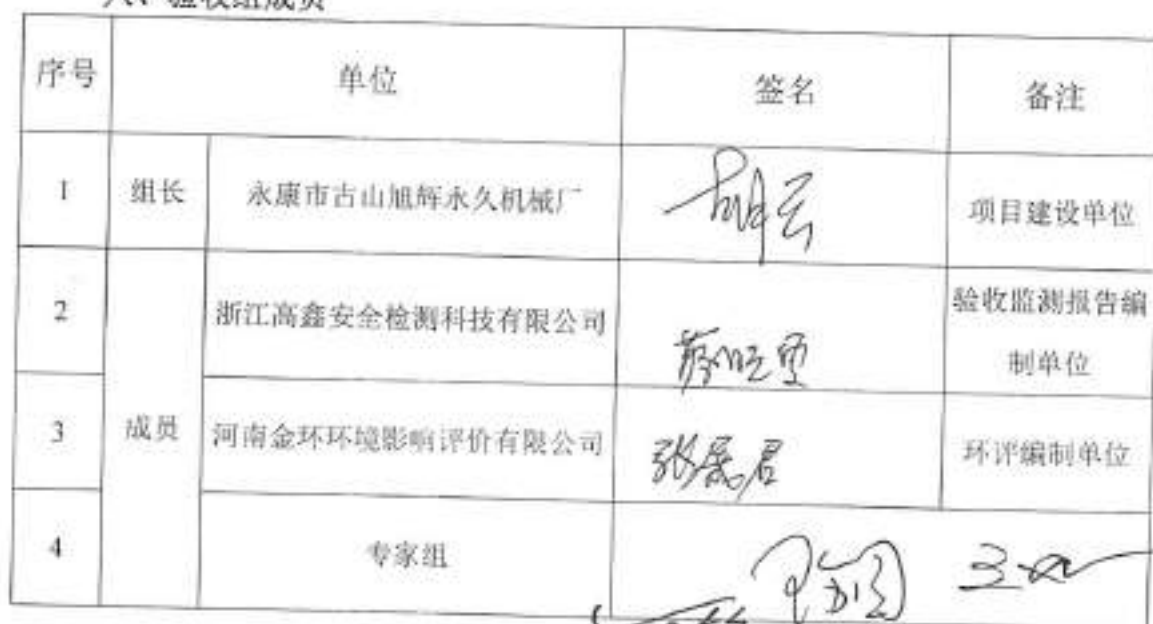 验收组成员
序号 单位 签名 备注
1 组长 永康市古山旭辉永久机械厂 胡云 项目建设单位
2 浙江高鑫安全检测科技有限公司 验收监测报告编
制单位
3 成员 河南金环环境影响评价有限公司 环评编制单位
4 专家组